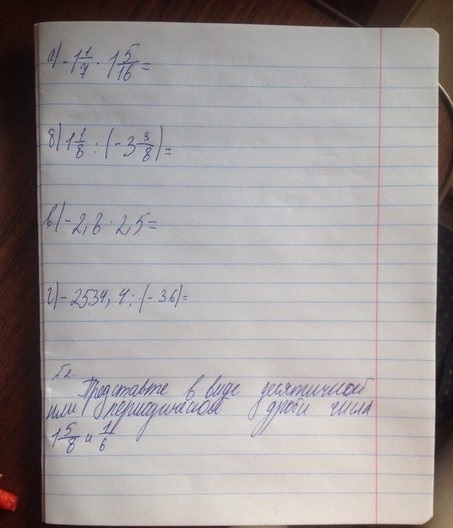 а) -1 1/7 · 1 5/16 =
б) 1 1/8 : (-3 3/8) =
в) -2,8 · 2,5 =
г) -2534,4 : (-36) =
Представьте в виде десятичной
или периодической дроби числа
1 5/8 и 1/6